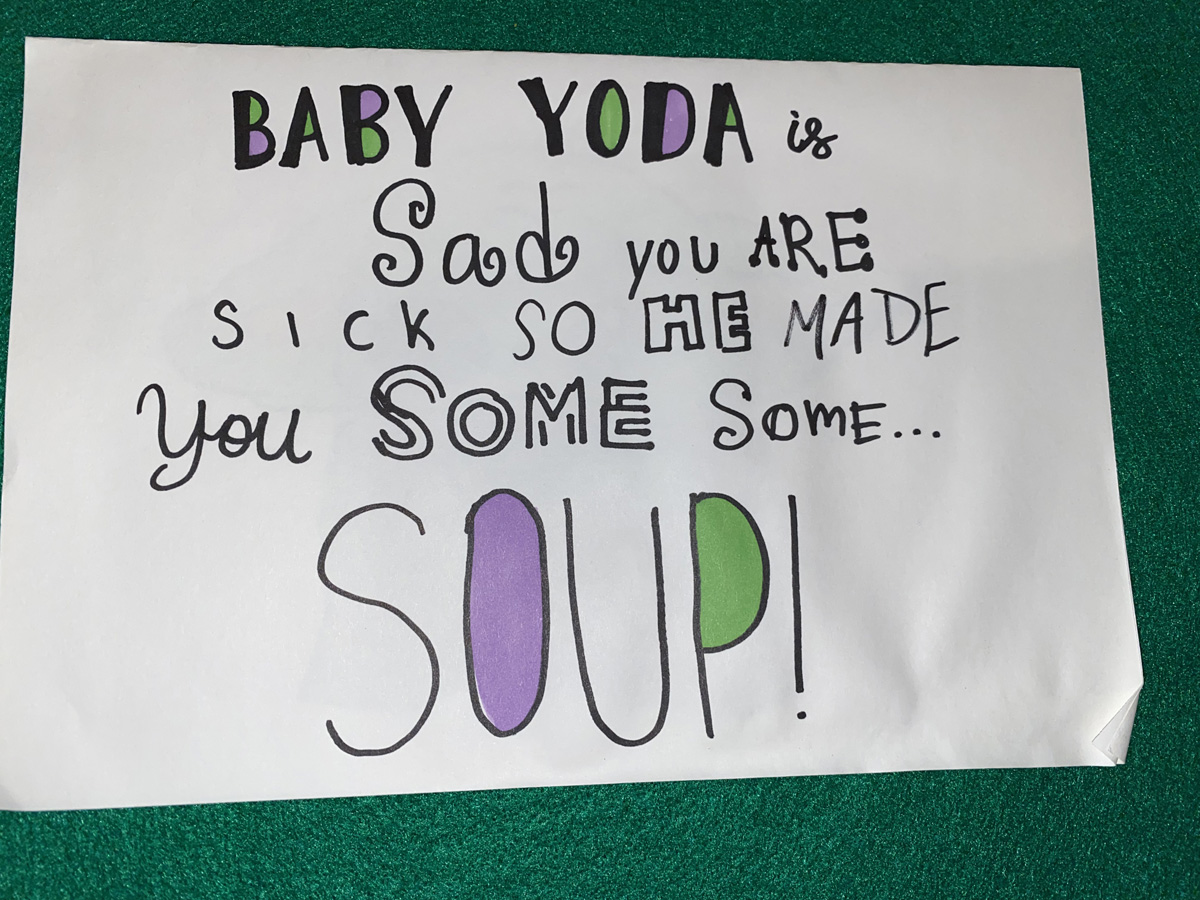 BABY YODA is
Sad you ARE
SICK SO HE MADE
you SOME SOME...
SOUP!